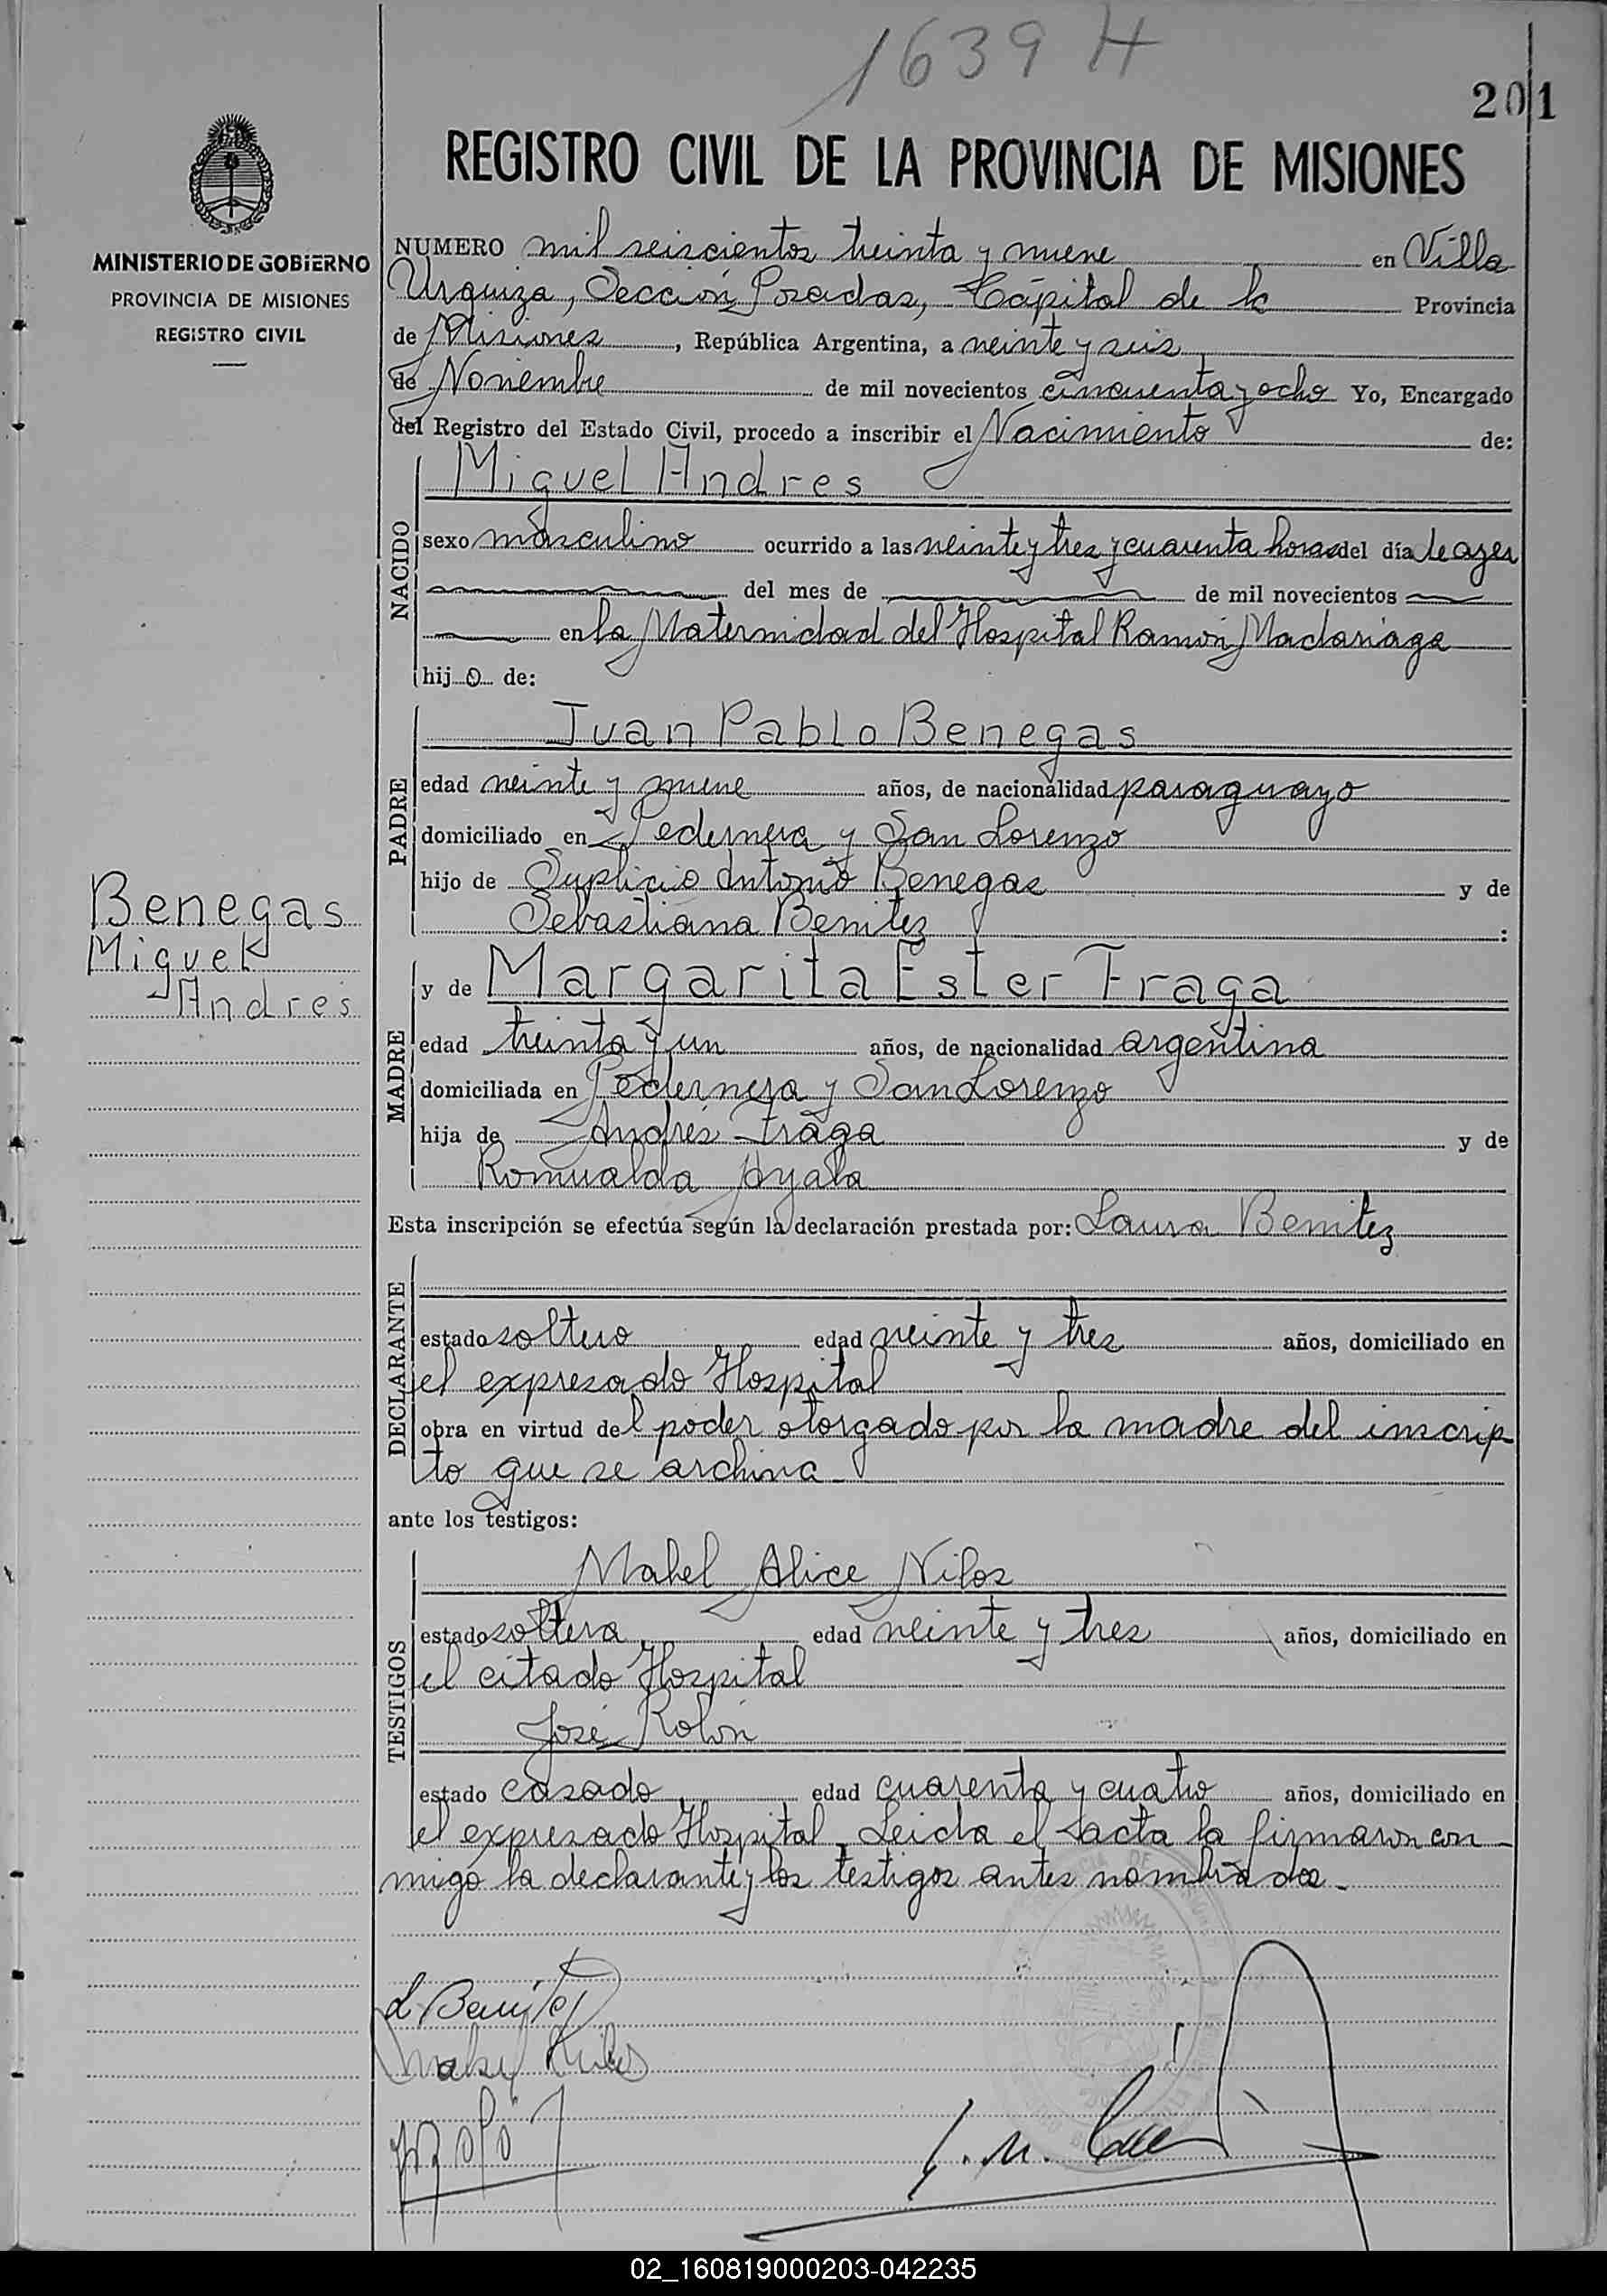 1639 H
201
REGISTRO CIVIL DE LA PROVINCIA DE MISIONES
MINISTERIO DE GOBIERNO
PROVINCIA DE MISIONES
REGISTRO CIVIL
NUMERO mil seiscientos treinta y nueve en Villa
Urquiza, Sección Posadas, Capital de la Provincia
de Misiones, República Argentina, a veinte y seis
de Noviembre de mil novecientos cincuenta y ocho Yo, Encargado
del Registro del Estado Civil, procedo a inscribir el Nacimiento de:
NACIDO
Miguel Andres
sexo masculino ocurrido a las veinte y tres y cuarenta horas del día de ayer
del mes de de mil novecientos
en la Maternidad del Hospital Ramón Madariaga
hijo de:
PADRE
Juan Pablo Benegas
edad veinte y nueve años, de nacionalidad paraguayo
domiciliado en Pedernera y San Lorenzo
hijo de Suplicio Antonio Benegas y de
Sebastiana Benitez :
Benegas
Miguel
Andres
MADRE
y de Margarita Ester Fraga
edad treinta y un años, de nacionalidad argentina
domiciliada en Pedernera y San Lorenzo
hija de Andrés Fraga y de
Romualda Ayala
Esta inscripción se efectúa según la declaración prestada por: Laura Benitez
DECLARANTE
estado soltero edad veinte y tres años, domiciliado en
el expresado Hospital
obra en virtud del poder otorgado por la madre del inscrip
to que se archiva
ante los testigos:
TESTIGOS
Mabel Alice Niloz
estado soltera edad veinte y tres años, domiciliado en
el citado Hospital
José Rolón
estado casado edad cuarenta y cuatro años, domiciliado en
el expresado Hospital. Leida el acta la firmaron con
migo la declarante y los testigos antes nombrados.
L Benitez
02_160819000203-042235